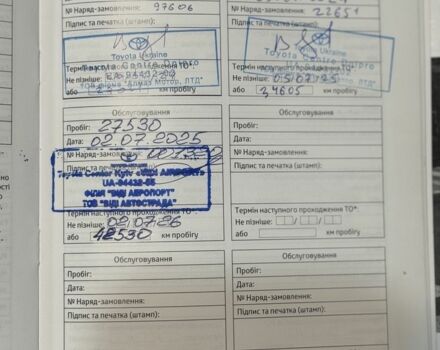 № Наряд-замовлення: 97606
Підпис та печатка (штамп):
Toyota Ukraine
Toyota Centre Dnipro
UA-94432-02
ТОВ Фірма "Алмаз Мотор, ЛТД"
Термін наступного проходження ТО*:
Не пізніше:
або
км пробігу
№ Наряд-замовлення: 22651
Підпис та печатка (штамп):
Toyota Ukraine
Toyota Centre Dnipro
"Алмаз Мотор, ЛТД"
Термін наступного проходження ТО*:
Не пізніше: 05 07 25
або 34605 км пробігу
Обслуговування
Пробіг: 27530
Дата: 02.07.2025
№ Наряд-замовлення:
Підпис та печатка (штамп):
UA-94432-55
ФІЛІЯ "ВІДІ АЕРОПОРТ"
ТОВ "ВІДІ АВТОСТРАДА"
Термін наступного проходження ТО*:
Не пізніше: 02 07 26
або 42530 км пробігу
Обслуговування
Пробіг:
Дата:
№ Наряд-замовлення:
Підпис та печатка (штамп):
Термін наступного проходження ТО*:
Не пізніше:
або км пробігу
Обслуговування
Пробіг:
Дата:
№ Наряд-замовлення:
Підпис та печатка (штамп):
Обслуговування
Пробіг:
Дата:
№ Наряд-замовлення:
Підпис та печатка (штамп):